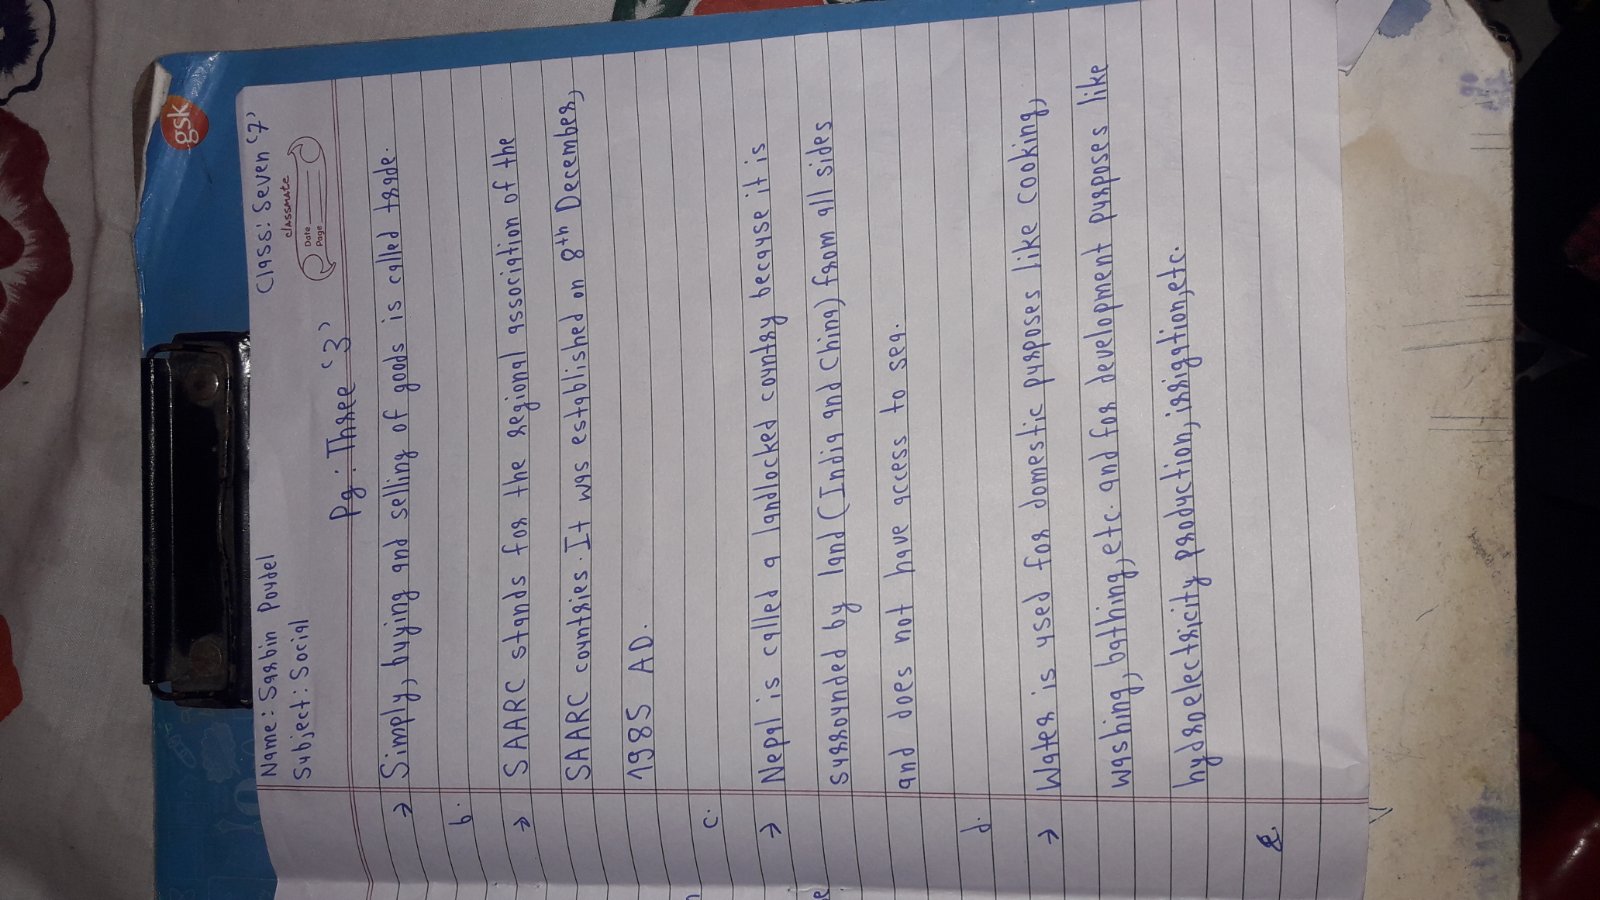 gsk
Name: Sarbin Poudel
Class: Seven '7'
Subject: Social
classmate
Date
Page
Pg: Three '3'
→ Simply, buying and selling of goods is called trade.
b.
→ SAARC stands for the regional association of the
SAARC countries. It was established on 8th December,
1985 AD.
c.
→ Nepal is called a landlocked country because it is
surrounded by land (India and China) from all sides
and does not have access to sea.
d.
→ Water is used for domestic purposes like cooking,
washing, bathing, etc. and for development purposes like
hydroelectricity production, irrigation, etc.
e.